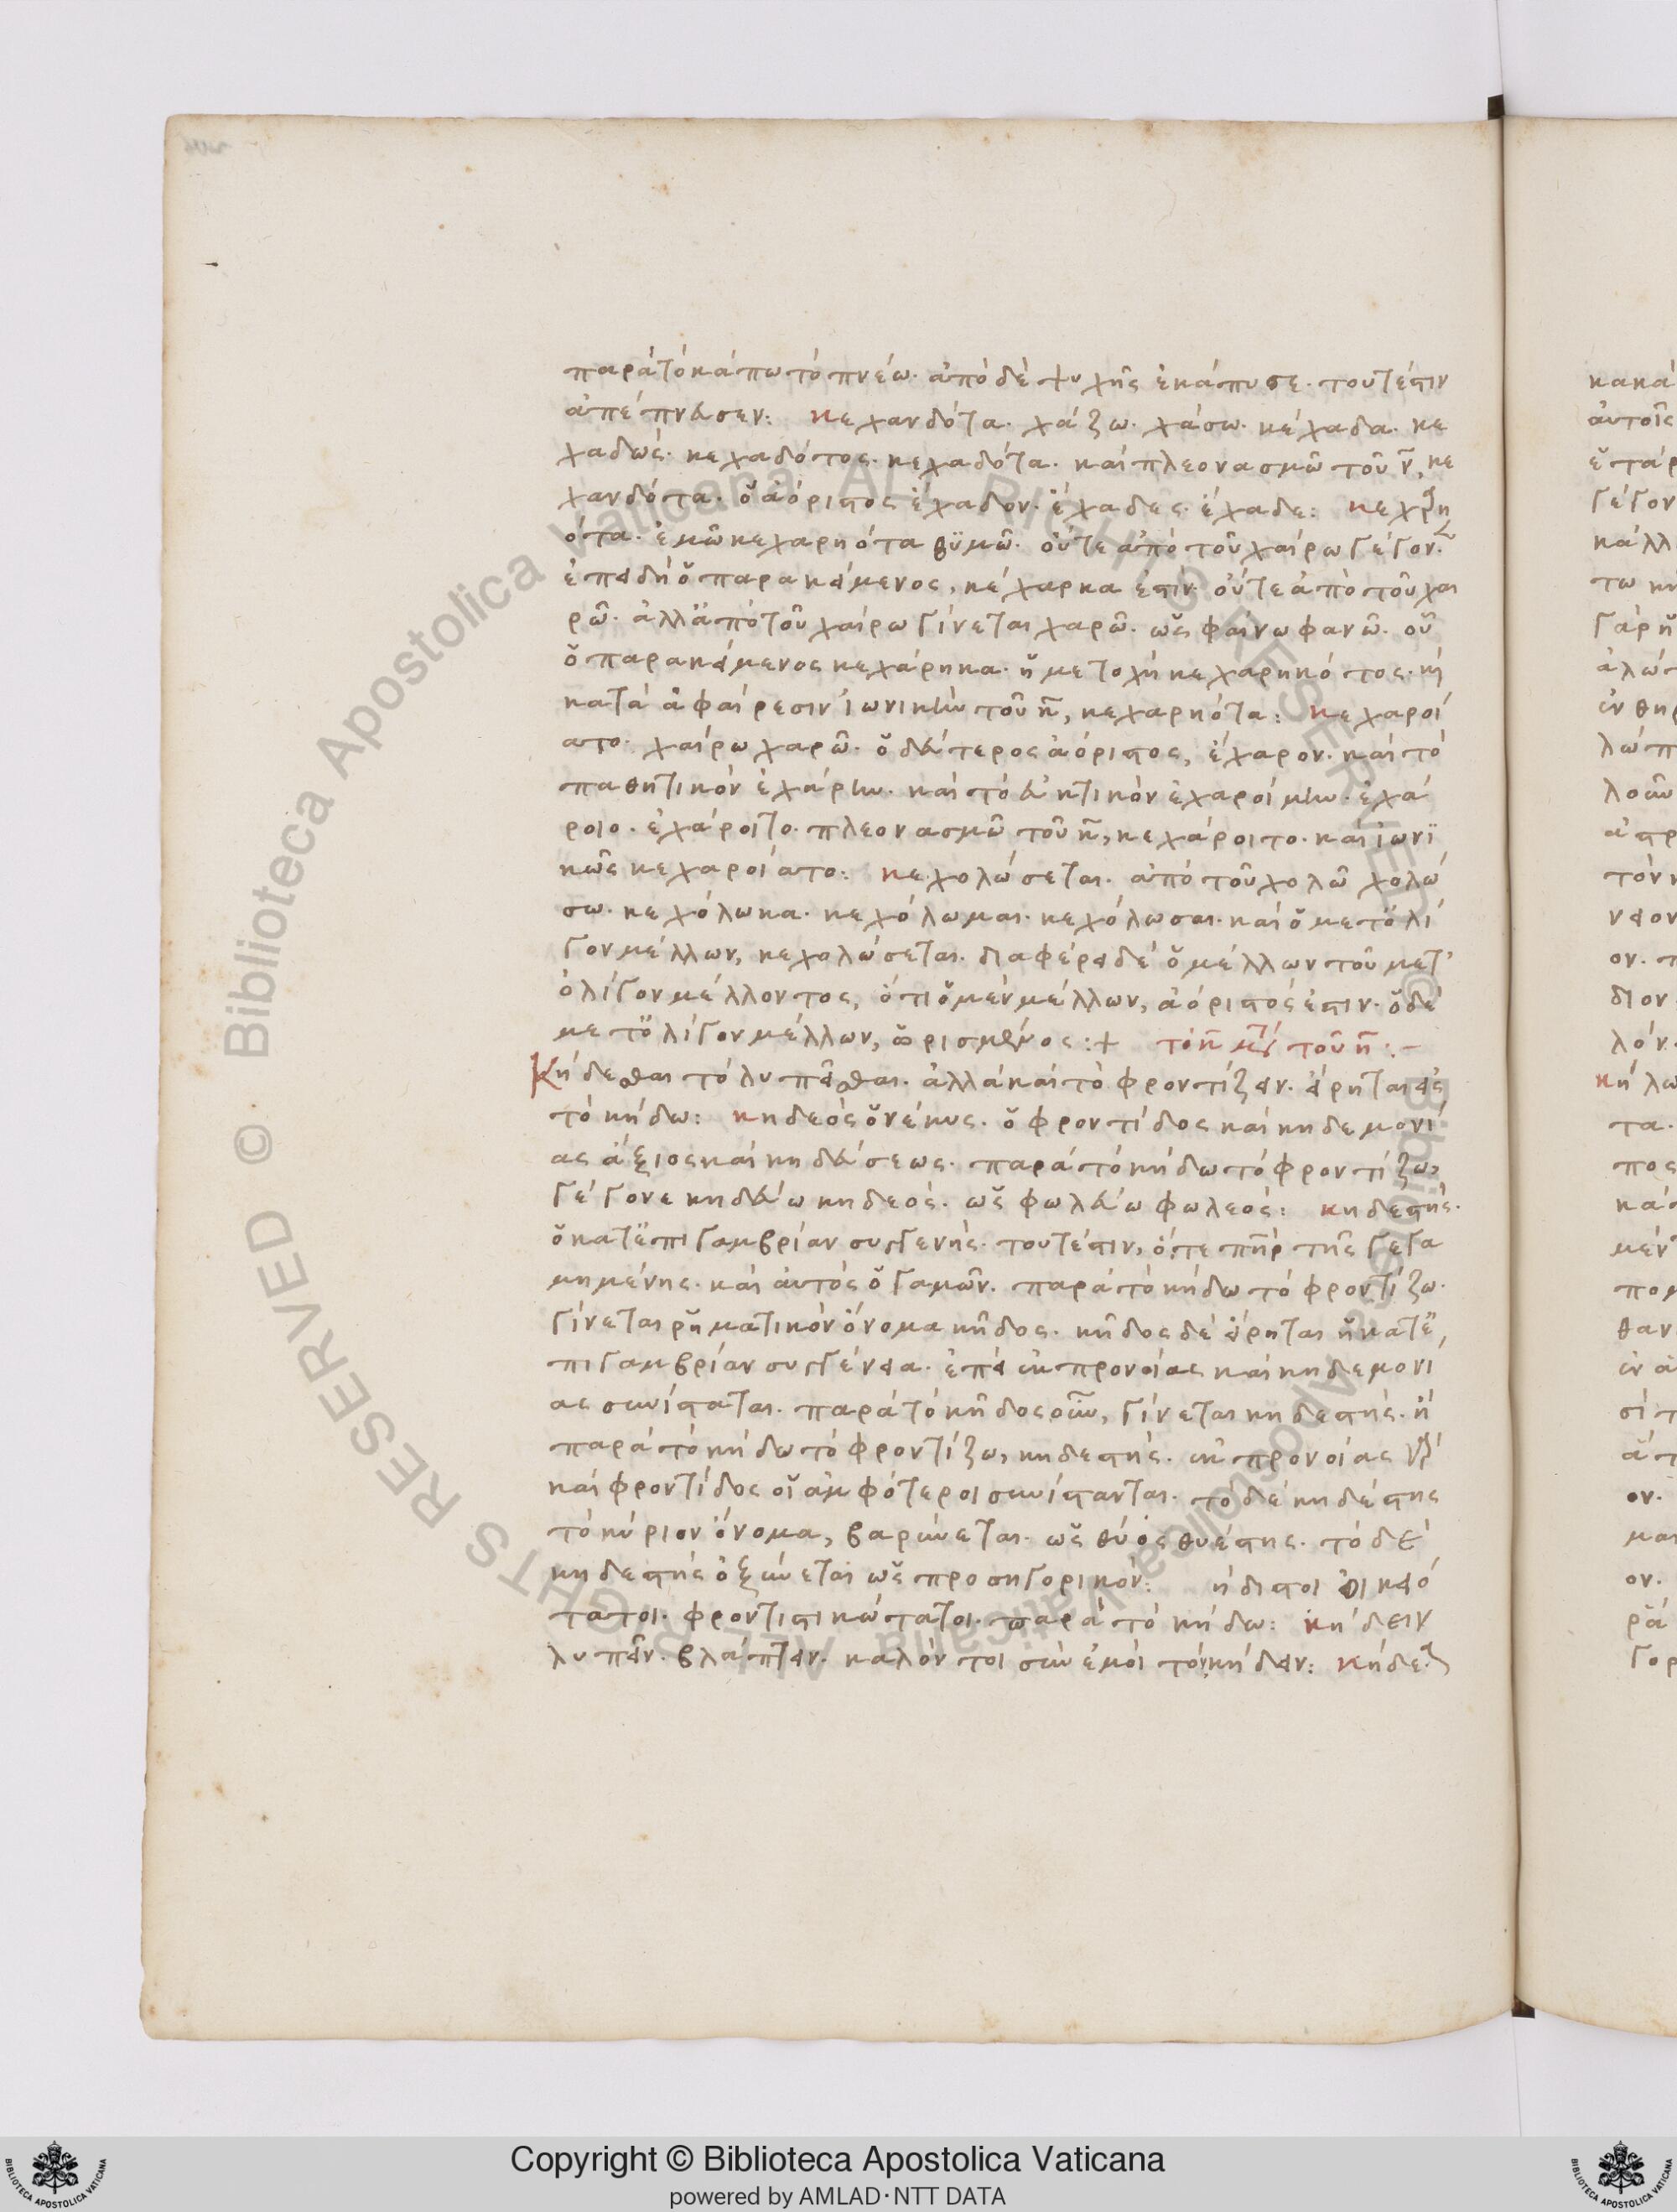 παρὰ τὸ κάπω τὸ πνέω. ἀπὸ δὲ ψυχῆς ἐκάπυσε. τουτέστιν
ἀπέπνευσεν: κεχανδότα. χάζω. χάσω. κέχαδα. κε
χαδὼς. κεχαδότος. κεχαδότα. καὶ πλεονασμῶ τοῦ ν̄, κε
χανδότα. ὁ ἀόριστος ἔχαδον. ἔχαδες. ἔχαδε: κεχαρη
ότα. ἐμῶ κεχαρηότα θυμῶ. οὔτε ἀπὸ τοῦ χαίρω γέγον
ἐπειδὴ ὁ παρακείμενος, κέχαρκα ἐστίν. οὔτε ἀπὸ τοῦ χαι
ρῶ. ἀλλ' ἀπὸ τοῦ χαίρω γίνεται χαρῶ. ὡς φαίνω φανῶ. οὗ
ὁ παρακείμενος κεχάρηκα. ἡ μετοχὴ κεχαρηκότος. καὶ
κατὰ ἀφαίρεσιν ἰωνικὴν τοῦ κ̄, κεχαρηότα: κεχαροί
ατο. χαίρω χαρῶ. ὁ δεύτερος ἀόριστος, ἔχαρον. καὶ τὸ
παθητικὸν ἐχάρην. καὶ τὸ εὐκτικὸν ἐχαροίμην. ἐχά
ροιο. ἐχάροιτο. πλεονασμῶ τοῦ κ̄, κεχάροιτο. καὶ ἰωνι
κῶς κεχαροίατο: κεχολώσεται. ἀπὸ τοῦ χολῶ χολώ
σω. κεχόλωκα. κεχόλωμαι. κεχόλωσαι. καὶ ὁ μετ' ὀλί
γον μέλλων, κεχολώσεται. διαφέρει δὲ ὁ μέλλων τοῦ μετ'
ὀλίγον μέλλοντος, ὅτι ὁ μὲν μέλλων, ἀόριστός ἐστιν. ὁ δὲ
μετ' ὀλίγον μέλλων, ὡρισμένος :+ τὸ κ̄ μετὰ τοῦ η̄ :-
Κήδεσθαι τὸ λυπεῖσθαι. ἀλλὰ καὶ τὸ φροντίζειν. εἴρηται εἰς
τὸ κήδω: κηδεὸς ὁ νέκυς. ὁ φροντίδος καὶ κηδεμονί
ας ἄξιος καὶ κηδεύσεως. παρὰ τὸ κήδω τὸ φροντίζω,
γέγονε κηδεύω κηδεός. ὡς φωλεύω φωλεός: κηδεστής.
ὁ κατ' ἐπιγαμβρίαν συγγενής. τουτέστιν, ὅ,τε πηρ τῆς γεγα
μημένης. καὶ αὐτὸς ὁ γαμῶν. παρὰ τὸ κήδω τὸ φροντίζω.
γίνεται ῥηματικὸν ὄνομα κῆδος. κῆδος δὲ εἴρηται ἡ κατ' ἐ
πιγαμβρίαν συγγένεια. ἐπεὶ ἐκ προνοίας καὶ κηδεμονί
ας συνίσταται. παρὰ τὸ κῆδος οὖν, γίνεται κηδεστής. ἢ
παρὰ τὸ κήδω τὸ φροντίζω, κηδεστής. ἐκ προνοίας γὰρ
καὶ φροντίδος οἱ ἀμφότεροι συνίστανται. τὸ δὲ κηδέστης
τὸ κύριον ὄνομα, βαρύνεται. ὡς θύος θυέστης. τὸ δὲ
κηδεστὴς ὀξύνεται ὡς προσηγορικόν: ήδιστοι οἰκειό
τατοι. φροντιστικώτατοι. παρὰ τὸ κήδω: κήδειν
λυπεῖν. βλάπτειν. καλόν τοι σὺν ἐμοὶ τὸν κήδειν: κήδεται